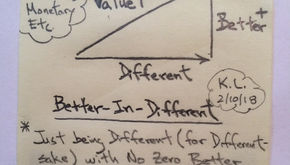 Value?
Monetary
Etc.
Better +
Different
K.L.
2/10/18
Better-In-Different
* Just being Different (for Different-
sake) with No Zero Better